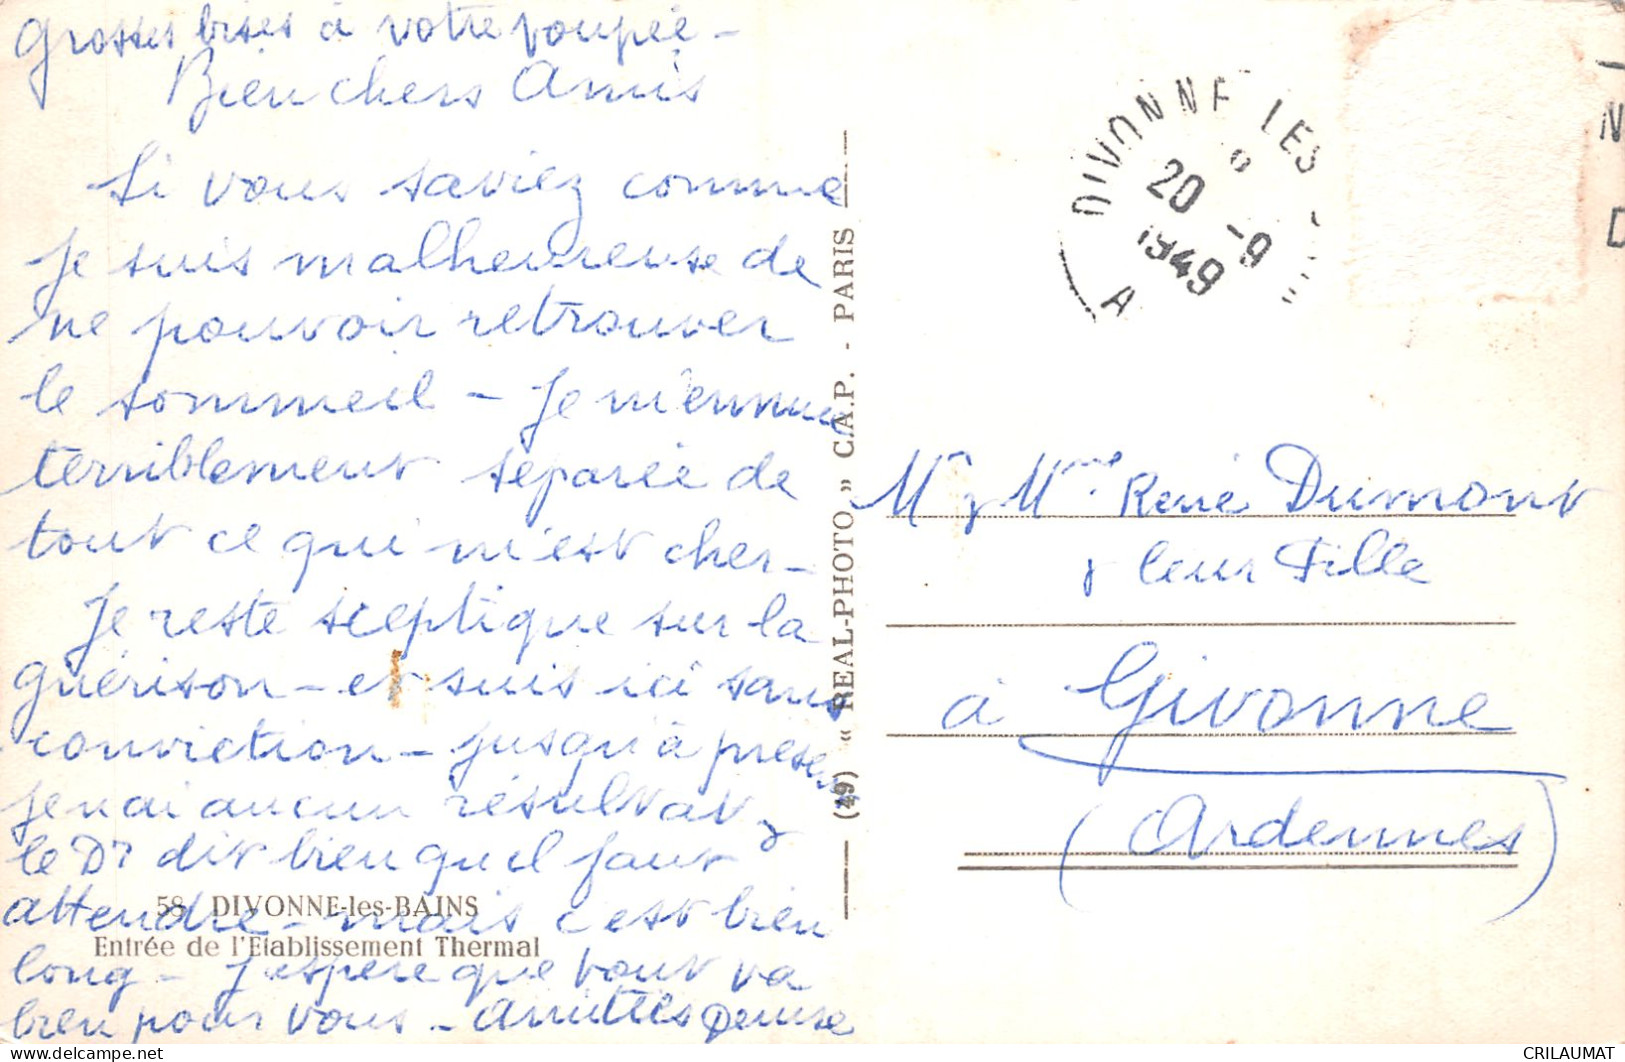 Grosses bises à votre poupée -
Bien chers Amis
Si vous saviez comme
je suis malheureuse de
ne pouvoir retrouver
le sommeil - Je m'ennuie
terriblement séparée de
tout ce qui m'est cher -
Je reste sceptique sur la
guérison - et suis ici sans
conviction - jusqu'à présent
je n'ai aucun résultat &
le Dr dit bien qu'il faut
attendre - mais c'est bien
long - J'espère que tout va
bien pour vous - Amitiés Denise
58 DIVONNE-les-BAINS
Entrée de l'Etablissement Thermal
(49) « REAL-PHOTO » C.A.P. - PARIS
DIVONNE LES
20 -9
1949
A
N
D
Mr & Mme René Dumont
& leur Fille
à Givonne
(Ardennes)
CRILAUMAT